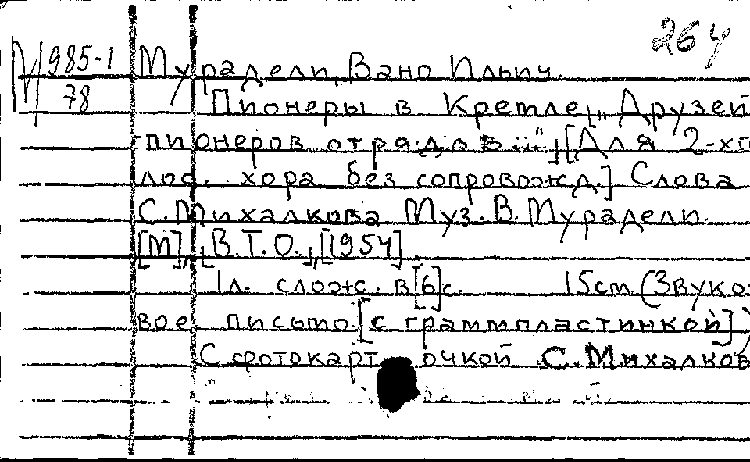 264
М 985-1
78
Мурадели, Вано Ильич.
Пионеры в Кремле. "Друзей
пионеров отрядов ..." [Для 2-хг
лос. хора без сопровожд.] Слова
С. Михалкова Муз. В. Мурадели.
[М], [В.Т.О.], [1954].
1 л. слож. в [6] с. 15 cm (Звуко-
вое письмо [с граммпластинкой])
С фотокарточкой С. Михалков